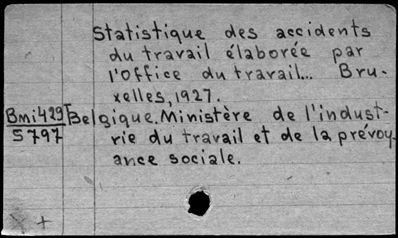 Statistique des accidents
du travail élaborée par
l'Office du travail... Bru-
xelles, 1927.
Bmi429 Belgique. Ministère de l'indust-
5797 rie du travail et de la prévoy-
ance sociale.
+